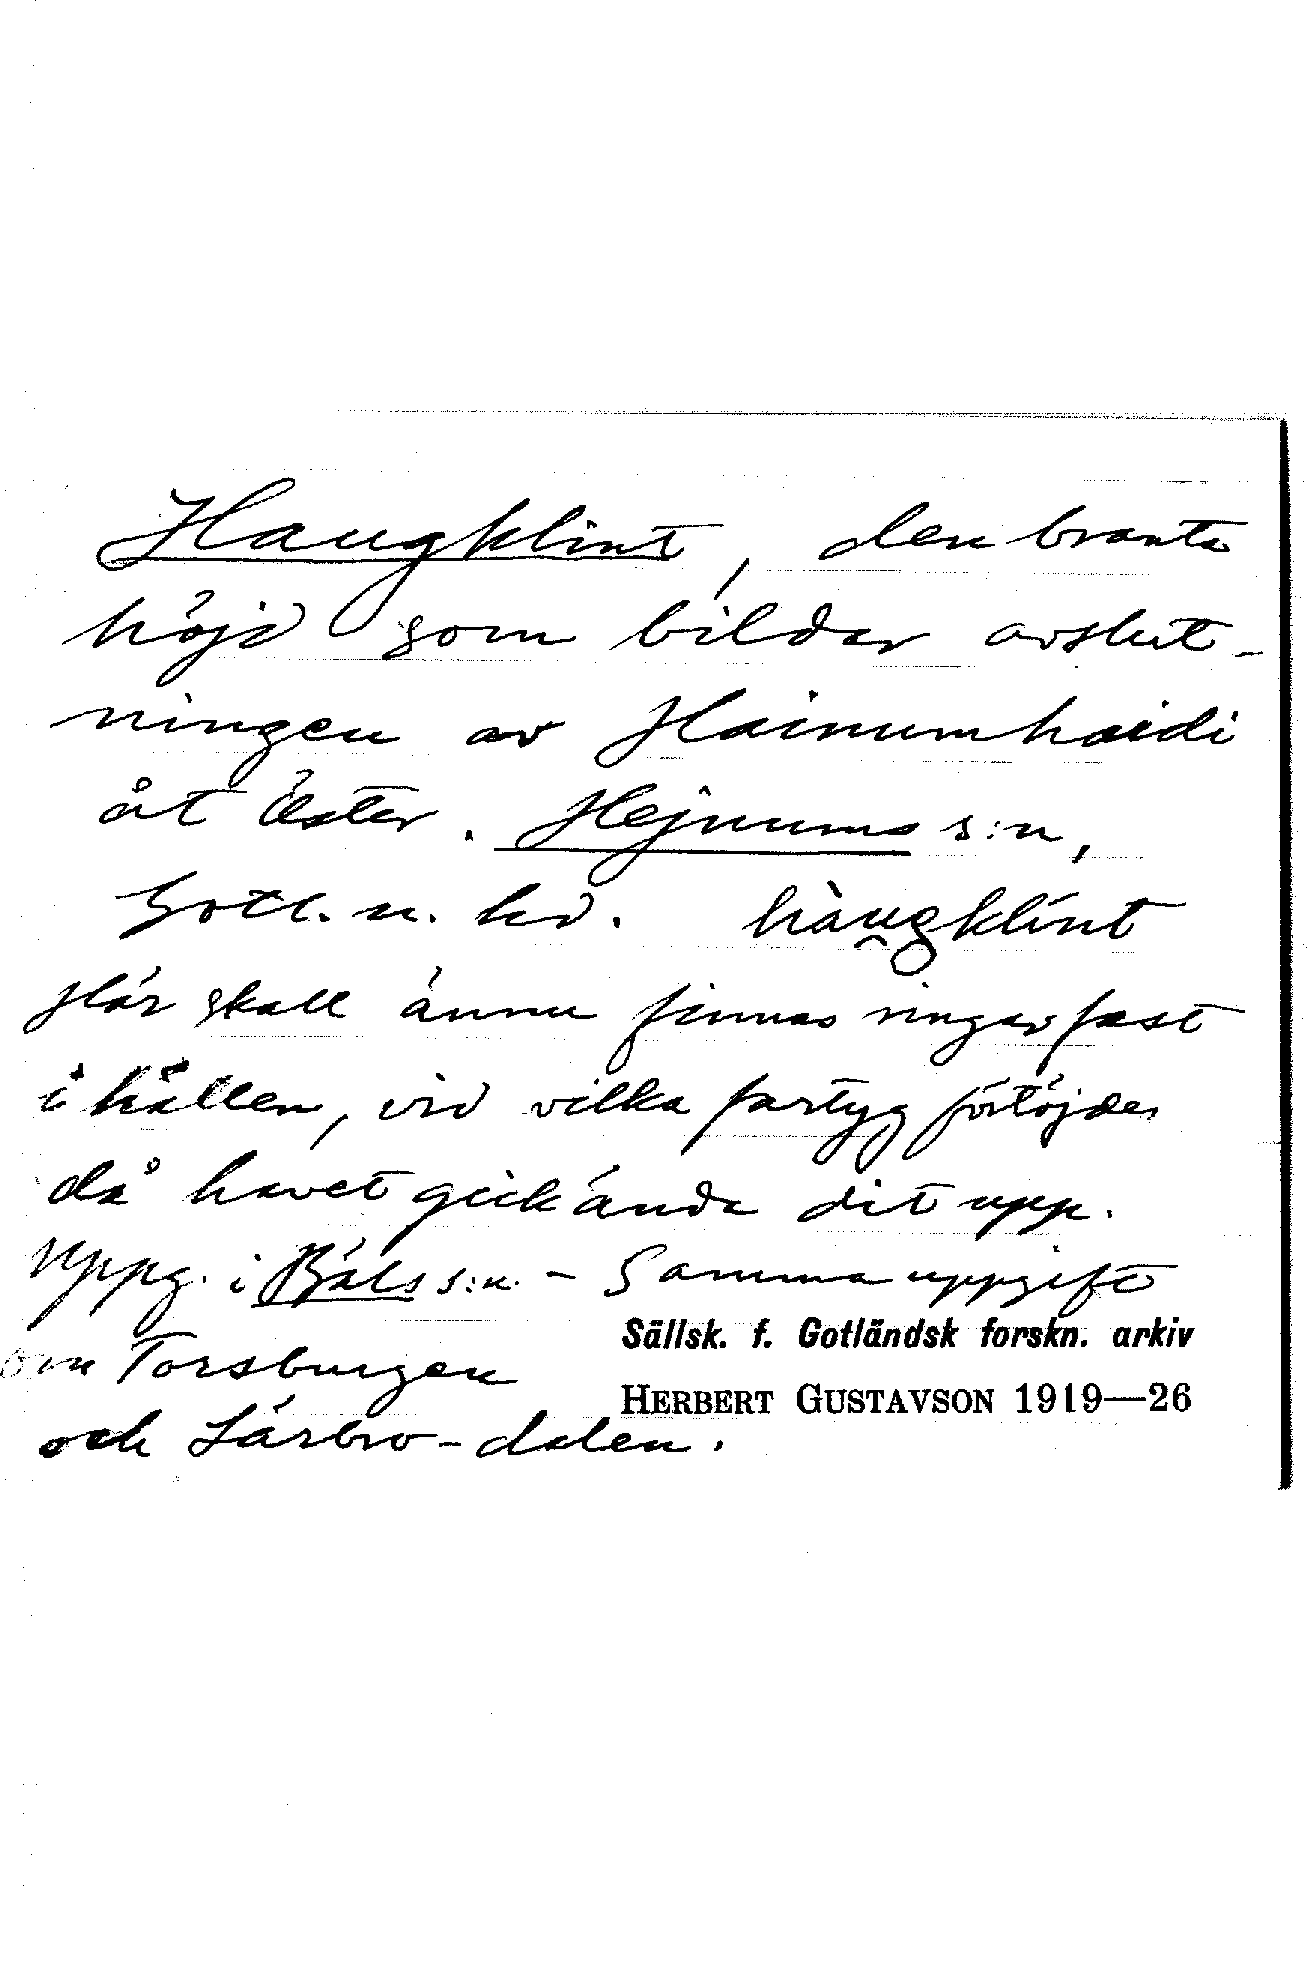 Haugklint, den branta
höjd som bildar avslut-
ningen av Hainumhaidi
åt öster. Hejnums s:n,
Gotl. n. hd. hàu̯gklint
Här skall ännu finnas ringar fast
i hällen, vid vilka fartyg förtöjdes
då havet gick ända dit upp.
Uppg. i Bäls s:n. - Samma uppgift
om Torsburgen
och Lärbro-dalen.
Sällsk. f. Gotländsk forskn. arkiv
HERBERT GUSTAVSON 1919—26